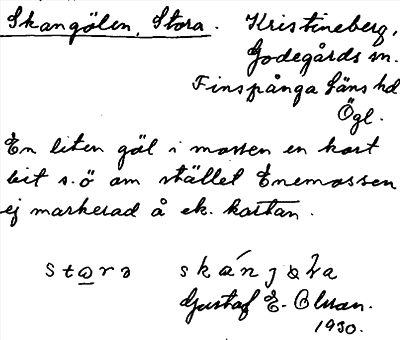 Skangölen, Stora. Kristineberg,
Godegårds sn.
Finspånga läns hd
Ögl.
En liten göl i mossen en kort
bit s.ö om stället Enemossen
ej markerad å ek. kartan.
Gustaf E. Olsson.
1930.